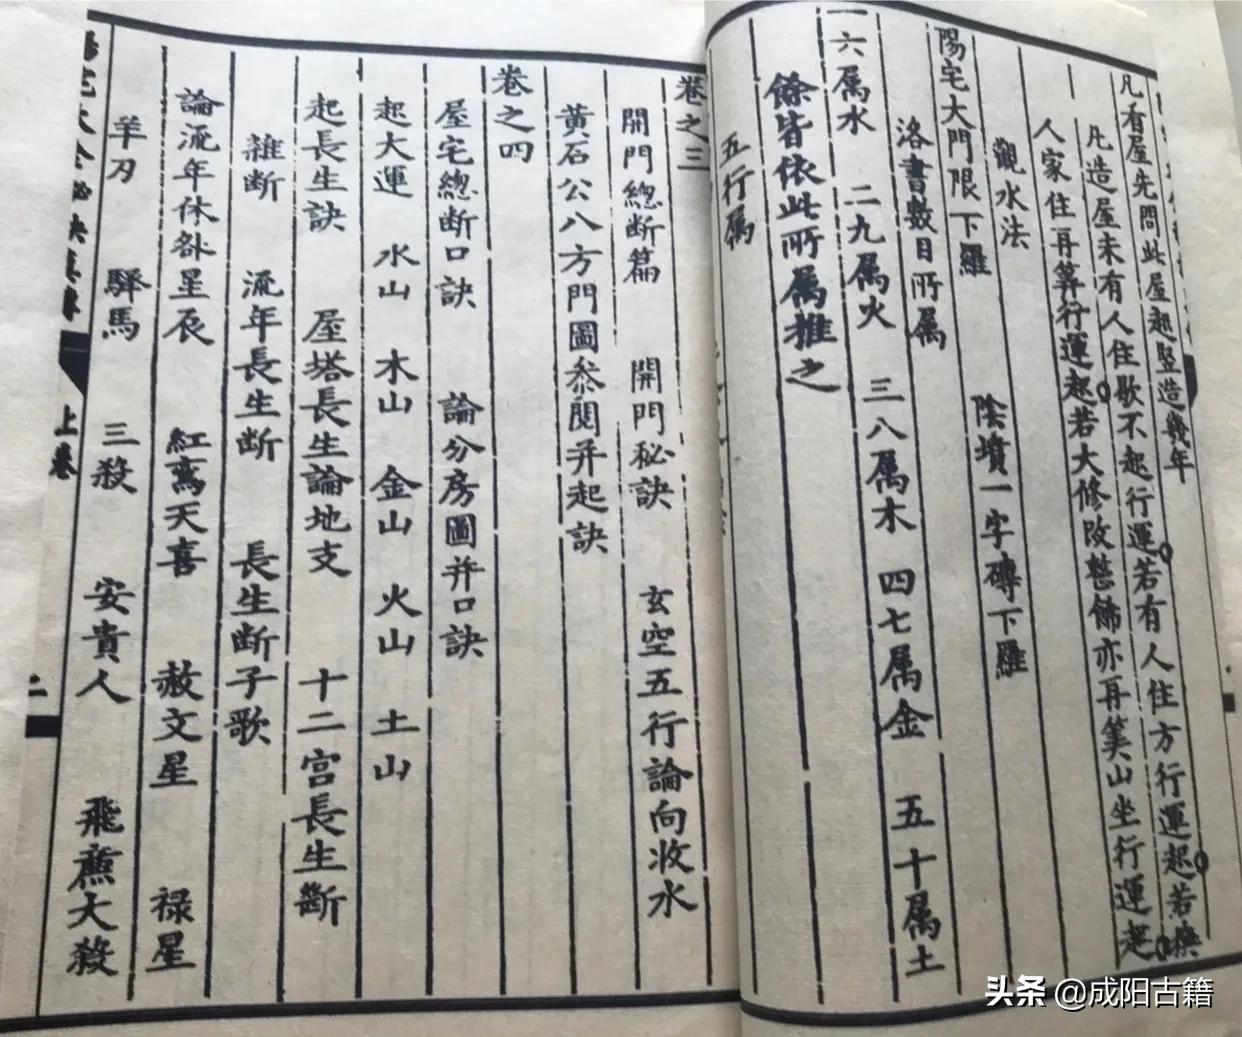 凡看屋先問此屋起竪造幾年
凡造屋未有人住歇不起行運若有人住方行運起若無
人家住再筭行運起若大修改整飾亦再筭山坐行運起
觀水法 陰墳一字磚下羅
陽宅大門限下羅
洛書數目所属
一六属水 二九属火 三八属木 四七属金 五十属土
餘皆依此所属推之
五行属
卷之三
開門總断篇 開門秘訣 玄空五行論向收水
黃石公八方門圖叅閱并起訣
卷之四
屋宅總断口訣 論分房圖并口訣
起大運 水山 木山 金山 火山 土山
起長生訣 屋塔長生論地支 十二宮長生斷
雜断 流年長生断 長生断子歌
論流年休咎星辰 紅鸞天喜 赦文星 禄星
羊刃 驛馬 三殺 安貴人 飛廉大殺
陽宅大全秘訣真傳 上卷 二
头条 @成阳古籍